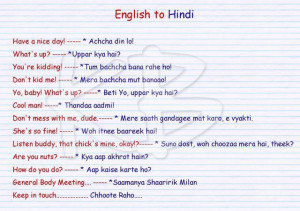 English to Hindi
Have a nice day! ----- * Achcha din lo!
What's up? ------ *Uppar kya hai?
You're kidding! ----- * Tum bachcha bana rahe ho!
Don't kid me! ----- * Mera bachcha mut banaao!
Yo, baby! What's up? ----- * Beti Yo, uppar kya hai?
Cool man! ----- * Thandaa aadmi!
Don't mess with me, dude.----- * Mere saath gandagee mat karo, e vyakti.
She's so fine! ----- * Woh itnee baareek hai!
Listen buddy, that chick's mine, okay!?----- * Suno dost, woh choozaa mera hai, theek?
Are you nuts? ----- * Kya aap akhrot hain?
How do you do? ----- * Aap kaise karte ho?
General Body Meeting.... ----- *Saamanya Shaaririk Milan
Keep in touch.................... Chhoote Raho.....